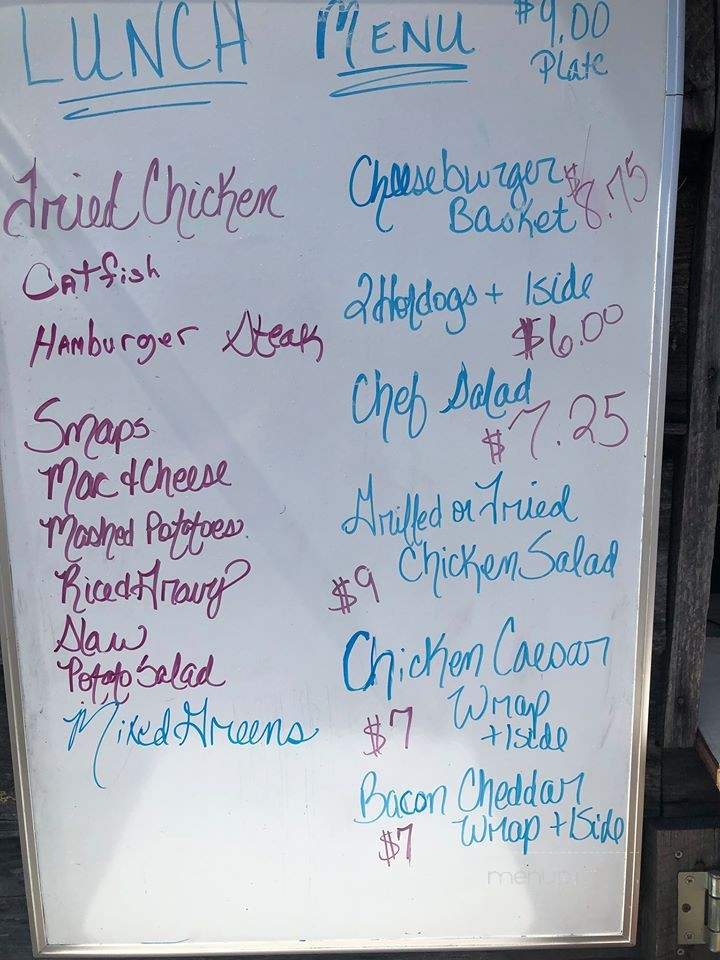 LUNCH MENU $9.00
Plate
Fried Chicken
Catfish
Hamburger Steak
Snaps
Mac & Cheese
Mashed Potatoes
Rice & Gravy
Slaw
Potato Salad
Mixed Greens
Cheeseburger $8.75
Basket
2 Hotdogs + 1side
$6.00
Chef Salad
$7.25
Grilled or Fried
Chicken Salad
$9
Chicken Caesar
Wrap
$7 + 1side
Bacon Cheddar
$7 Wrap + 1Side